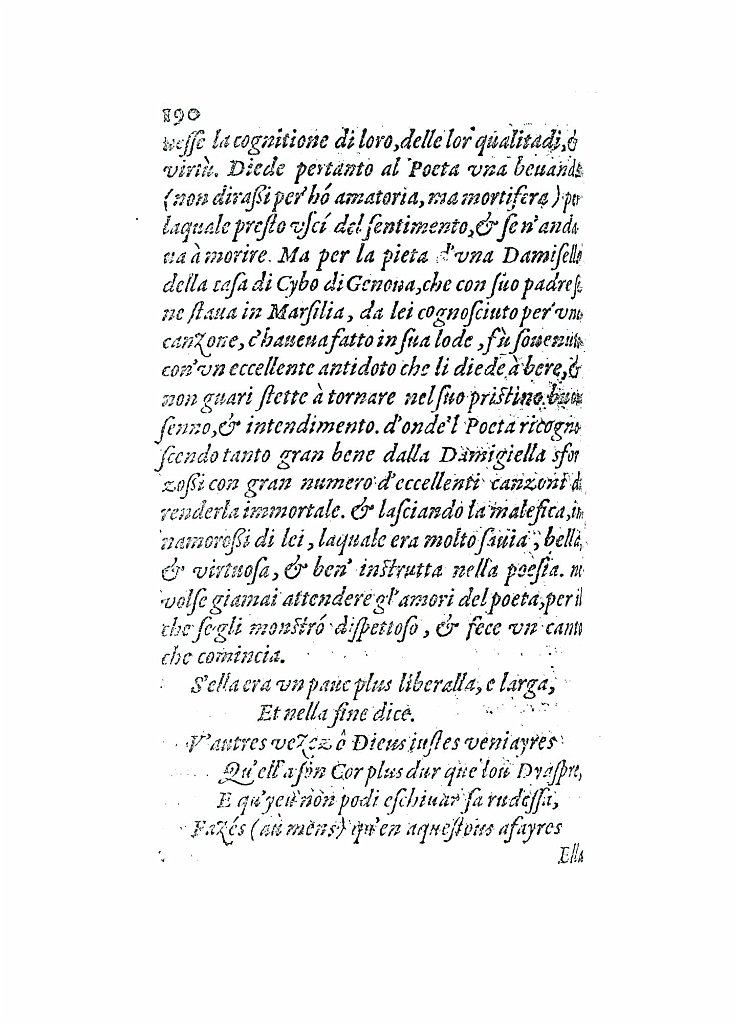 190
uesse la cognitione di loro, delle lor' qualitadi, &
virtù. Diede pertanto al Poeta vna beuanda
(non dirassi per hó amatoria, ma mortifera) per
laquale presto vscí del sentimento, & se n'anda
ua à morire. Ma per la pieta d'vna Damiselle
della casa di Cybo di Genoua, che con suo padre se
ne staua in Marsilia, da lei cognosciuto per vna
canzone, c'haueua fatto in sua lode, fù souenuto
con'vn eccellente antidoto che li diede à bere, &
non guari stette à tornare nel suo pristino buon
senno, & intendimento. d'onde'l Poeta ricogno
scendo tanto gran bene dalla Damigiella sfor
zossi con gran numero d'eccellenti canzoni di
renderla immortale. & lasciando la malefica, in
namorossi di lei, laquale era molto sauia, bella,
& virtuosa, & ben' instrutta nella poesia. ne
volse giamai attendere gl'amori del poeta, per il
che se gli monstró dispettoso, & fece vn canto
che comincia.
S'ella era vn pauc plus liberalla, e larga,
Et nella fine dice.
V'autres vezez ô Dieus iustes veniayres
Qu'ell'a son Cor plus dur que lou Dyaspre,
E qu'yeu non podi eschiuar sa rudessa,
Fazés (au mens) qu'en aquestous afayres
Ella